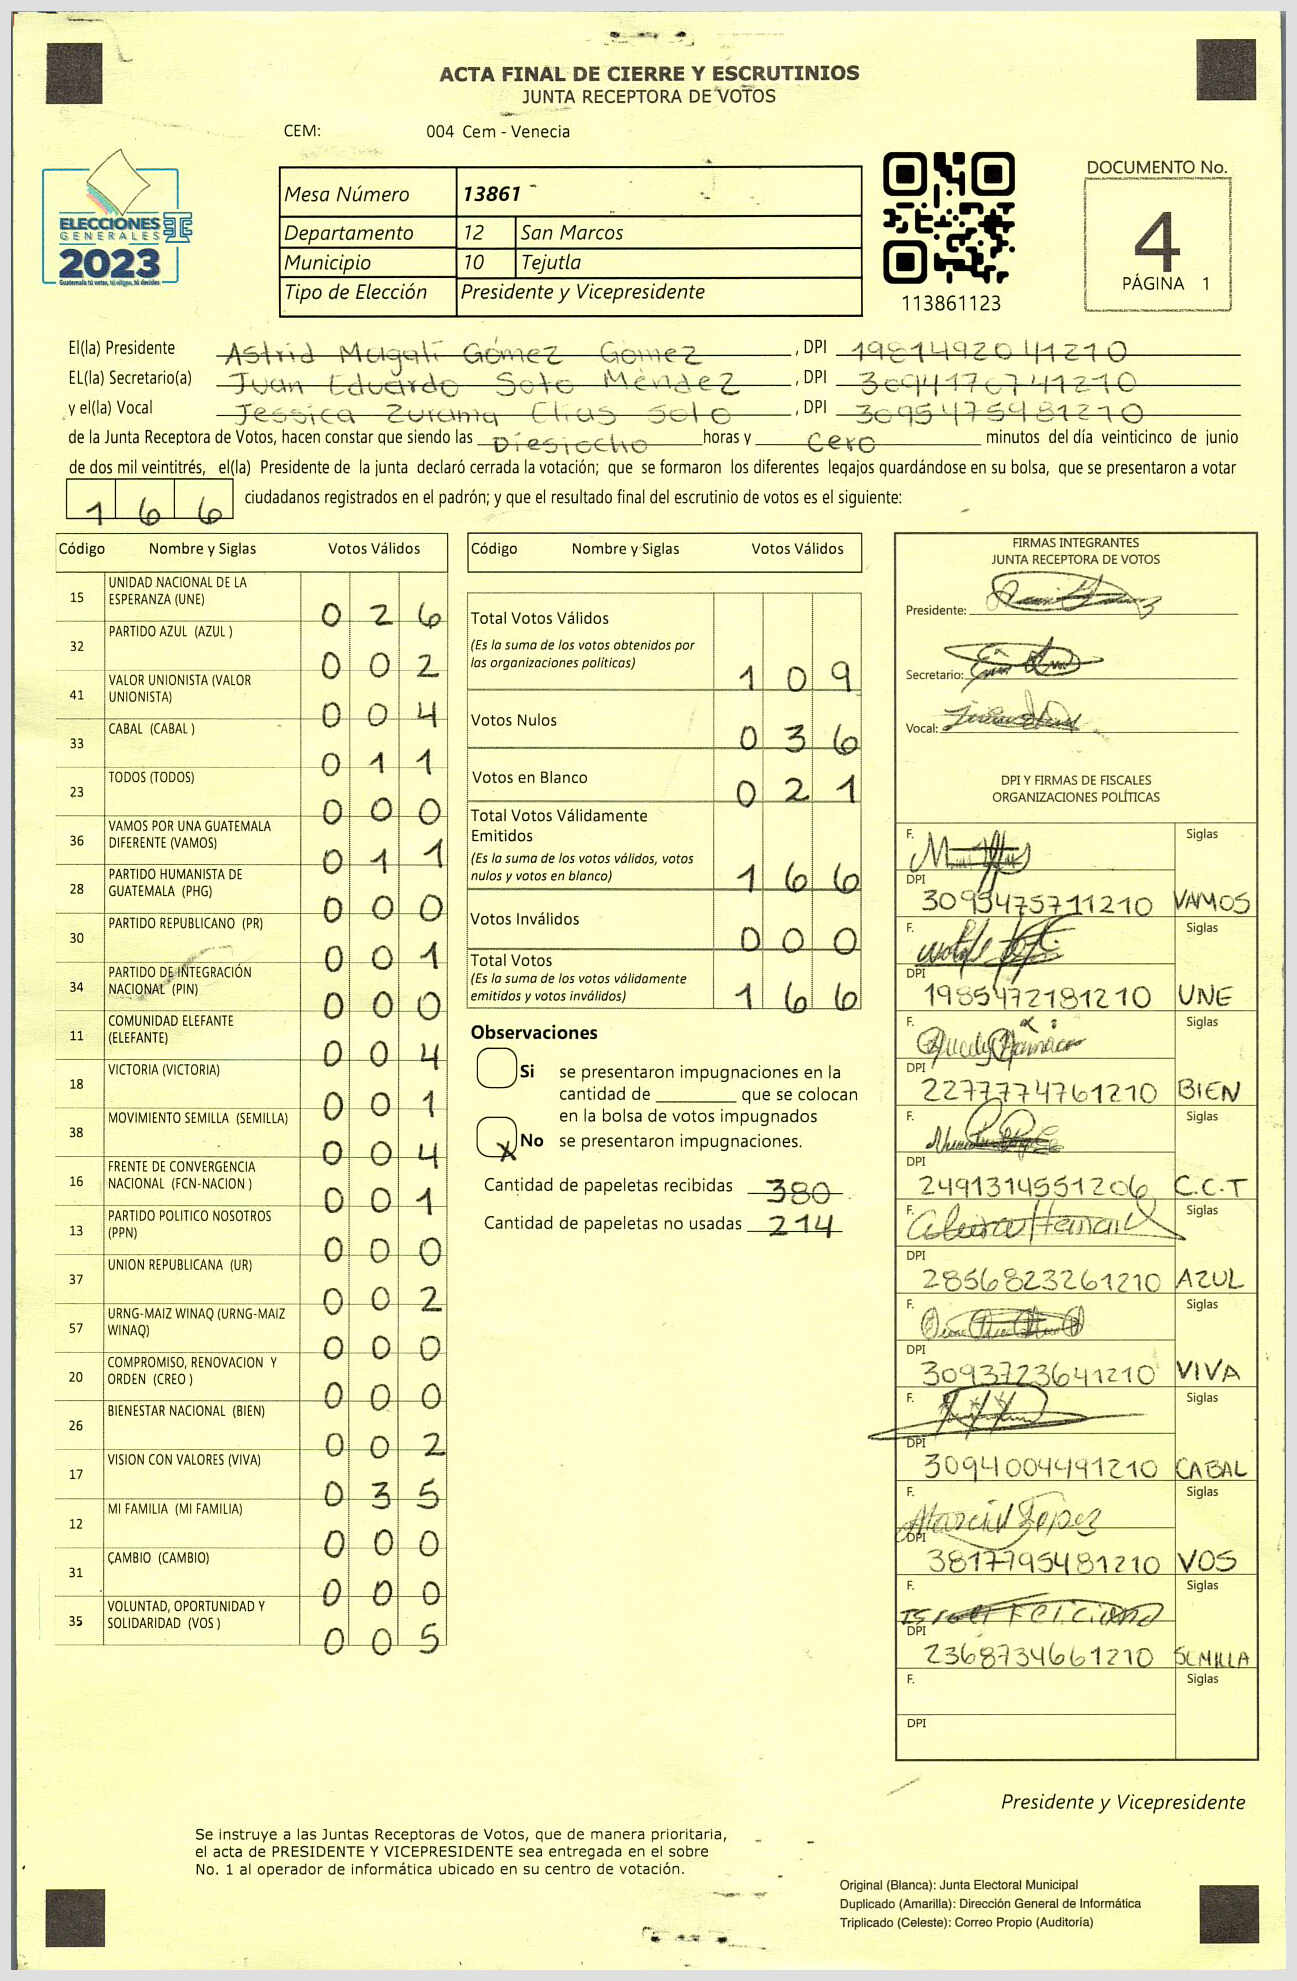 ACTA FINAL DE CIERRE Y ESCRUTINIOS
JUNTA RECEPTORA DE VOTOS
CEM: 004 Cem - Venecia
ELECCIONES
GENERALES
2023
Guatemala tú votas, tú eliges, tú decides
Mesa Número 13861
Departamento 12 San Marcos
Municipio 10 Tejutla
Tipo de Elección Presidente y Vicepresidente
113861123
DOCUMENTO No.
4
PÁGINA 1
El(la) Presidente Astrid Magalí Gómez Gómez , DPI 1981492041210
EL(la) Secretario(a) Juan Eduardo Soto Méndez , DPI 3094170741210
y el(la) Vocal Jessica Zurama Elias Soto , DPI 3095475981210
de la Junta Receptora de Votos, hacen constar que siendo las Diesiocho horas y Cero minutos del día veinticinco de junio
de dos mil veintitrés, el(la) Presidente de la junta declaró cerrada la votación; que se formaron los diferentes legajos quardándose en su bolsa, que se presentaron a votar
166 ciudadanos registrados en el padrón; y que el resultado final del escrutinio de votos es el siguiente:
Código Nombre y Siglas Votos Válidos
15 UNIDAD NACIONAL DE LA ESPERANZA (UNE) 026
32 PARTIDO AZUL (AZUL ) 002
41 VALOR UNIONISTA (VALOR UNIONISTA) 004
33 CABAL (CABAL ) 011
23 TODOS (TODOS) 000
36 VAMOS POR UNA GUATEMALA DIFERENTE (VAMOS) 011
28 PARTIDO HUMANISTA DE GUATEMALA (PHG) 000
30 PARTIDO REPUBLICANO (PR) 001
34 PARTIDO DE INTEGRACIÓN NACIONAL (PIN) 000
11 COMUNIDAD ELEFANTE (ELEFANTE) 004
18 VICTORIA (VICTORIA) 001
38 MOVIMIENTO SEMILLA (SEMILLA) 004
16 FRENTE DE CONVERGENCIA NACIONAL (FCN-NACION ) 001
13 PARTIDO POLITICO NOSOTROS (PPN) 000
37 UNION REPUBLICANA (UR) 002
57 URNG-MAIZ WINAQ (URNG-MAIZ WINAQ) 000
20 COMPROMISO, RENOVACION Y ORDEN (CREO ) 000
26 BIENESTAR NACIONAL (BIEN) 002
17 VISION CON VALORES (VIVA) 035
12 MI FAMILIA (MI FAMILIA) 000
31 CAMBIO (CAMBIO) 000
35 VOLUNTAD, OPORTUNIDAD Y SOLIDARIDAD (VOS ) 005
Código Nombre y Siglas Votos Válidos
Total Votos Válidos
(Es la suma de los votos obtenidos por
las organizaciones politicas) 109
Votos Nulos 036
Votos en Blanco 021
Total Votos Válidamente
Emitidos
(Es la suma de los votos válidos, votos
nulos y votos en blanco) 166
Votos Inválidos 000
Total Votos
(Es la suma de los votos válidamente
emitidos y votos inválidos) 166
Observaciones
Si se presentaron impugnaciones en la
cantidad de ________ que se colocan
en la bolsa de votos impugnados
X No se presentaron impugnaciones.
Cantidad de papeletas recibidas 380
Cantidad de papeletas no usadas 214
FIRMAS INTEGRANTES
JUNTA RECEPTORA DE VOTOS
Presidente:
Secretario:
Vocal:
DPI Y FIRMAS DE FISCALES
ORGANIZACIONES POLÍTICAS
F. Siglas
DPI 3095475711210 VAMOS
F. Siglas
DPI 1985472181210 UNE
F. Siglas
DPI 2277774761210 BIEN
F. Siglas
DPI 2491314551206 C.C.T
F. Siglas
DPI 2856823261210 AZUL
F. Siglas
DPI 3093723641210 VIVA
F. Siglas
DPI 3094004491210 CABAL
F. Marcial López Siglas
DPI 3817795481210 VOS
F. Feliciano Siglas
DPI 2368734661210 SEMILLA
F. Siglas
DPI
Presidente y Vicepresidente
Se instruye a las Juntas Receptoras de Votos, que de manera prioritaria,
el acta de PRESIDENTE Y VICEPRESIDENTE sea entregada en el sobre
No. 1 al operador de informática ubicado en su centro de votación.
Original (Blanca): Junta Electoral Municipal
Duplicado (Amarilla): Dirección General de Informática
Triplicado (Celeste): Correo Propio (Auditoría)